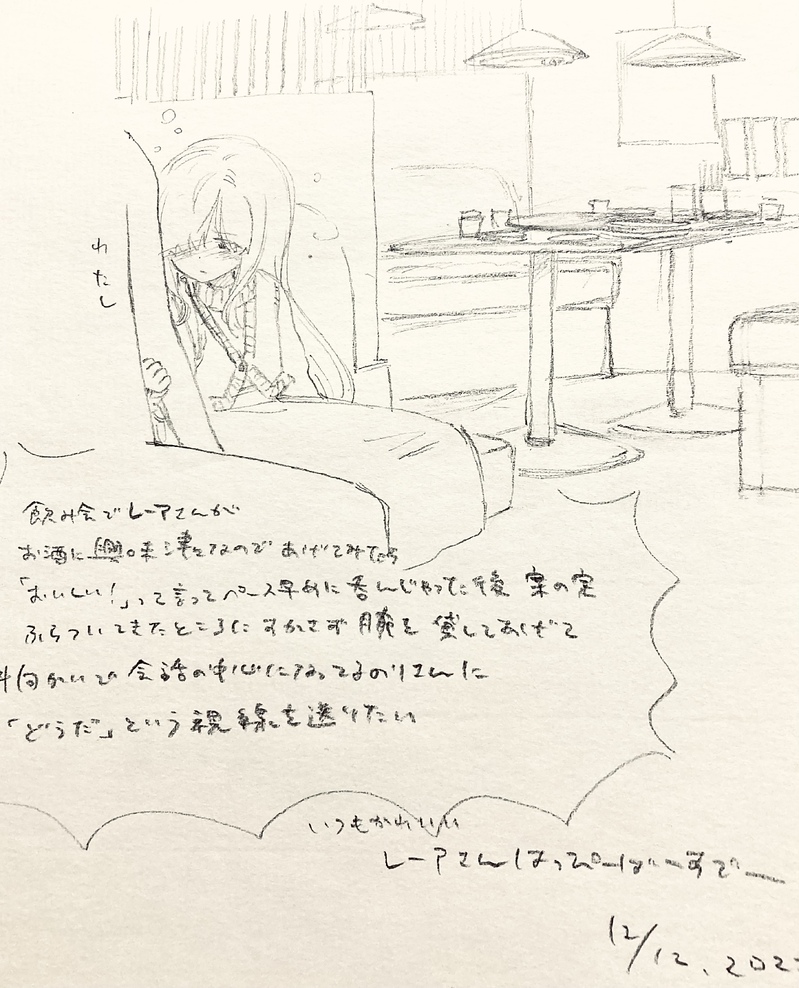 わたし
飲み会でレーアさんが
お酒に興味津々なので あげてみたら
「おいしい!」って言ってペース早めに呑んじゃった後 案の定
ふらついてきたところに すかさず 腕を 貸してあげて
斜向かいで 会話の中心になってるのりさんに
「どうだ」という視線を送りたい
いつもかわいい
レーアさんはっぴーばーすでー
12/12, 202